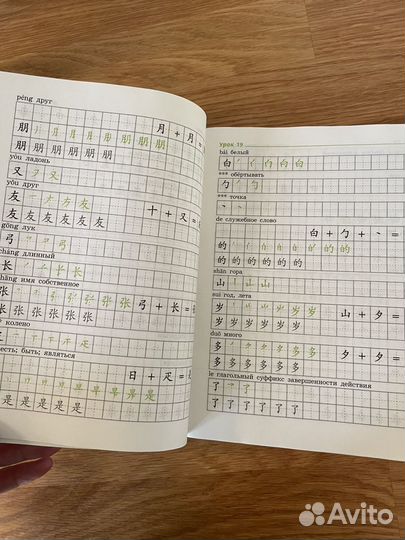 péng друг
朋 月 + 月 =
朋 朋 朋 朋 朋 朋
yòu ладонь
又 フ 又
yǒu друг
友 一 ナ 方 友
友 友 友 友 友 友 十 + 又 =
gōng лук
弓 弓
cháng длинный
长 长 长
zhāng имя собственное
张 张 张 张 弓 + 长 =
张 张 张 张 张 张
колено
есть; быть; являться
日 + 疋 =
是 是 是 是 是
Урок 19
bái белый
白 白 白
*** обёртывать
勺 勺
*** точка
丶
de служебное слово
白 + 勹 + 丶 =
的 的 的
的 的 的 的 的 的
shān гора
山 山 山
suì год, лета
岁 山 + 夕 =
岁 岁 岁 岁 岁 岁
duō много
多 夕 + 夕 =
多 多 多 多 多 多
le глагольный суффикс завершенности действия
了 了
了 了 了 了 了 了
Avito